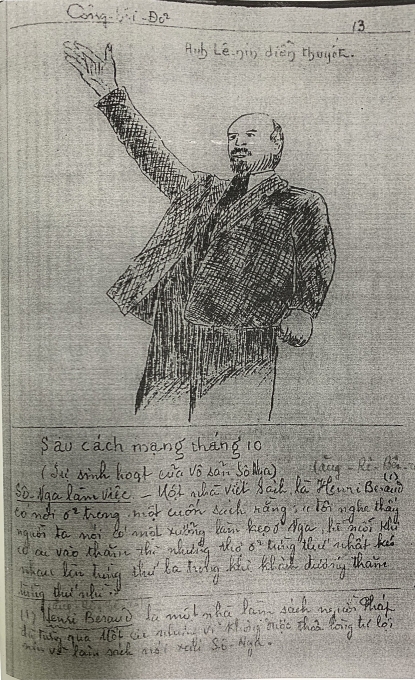 Công
13
Anh Lê-nin diễn thuyết.
Sau cách mạng tháng 10
(Sự sinh hoạt của Vô sản Sô Nga)
Sô-Nga làm việc - Một nhà viết sách, là Henri Beraud (1)
có nói ở trong một cuốn sách rằng: tôi nghe thấy
người ta nói có một xưởng làm kẹo ở Nga, hễ nói khi
có ai vào thăm thì những thợ ở từng thứ nhất kéo
nhau lên từng thứ ba trong khi khách đương thăm
từng thứ nhì.
(1) Henri Beraud là một nhà làm sách người Pháp
qua
làm sách nói xấu Sô-Nga.